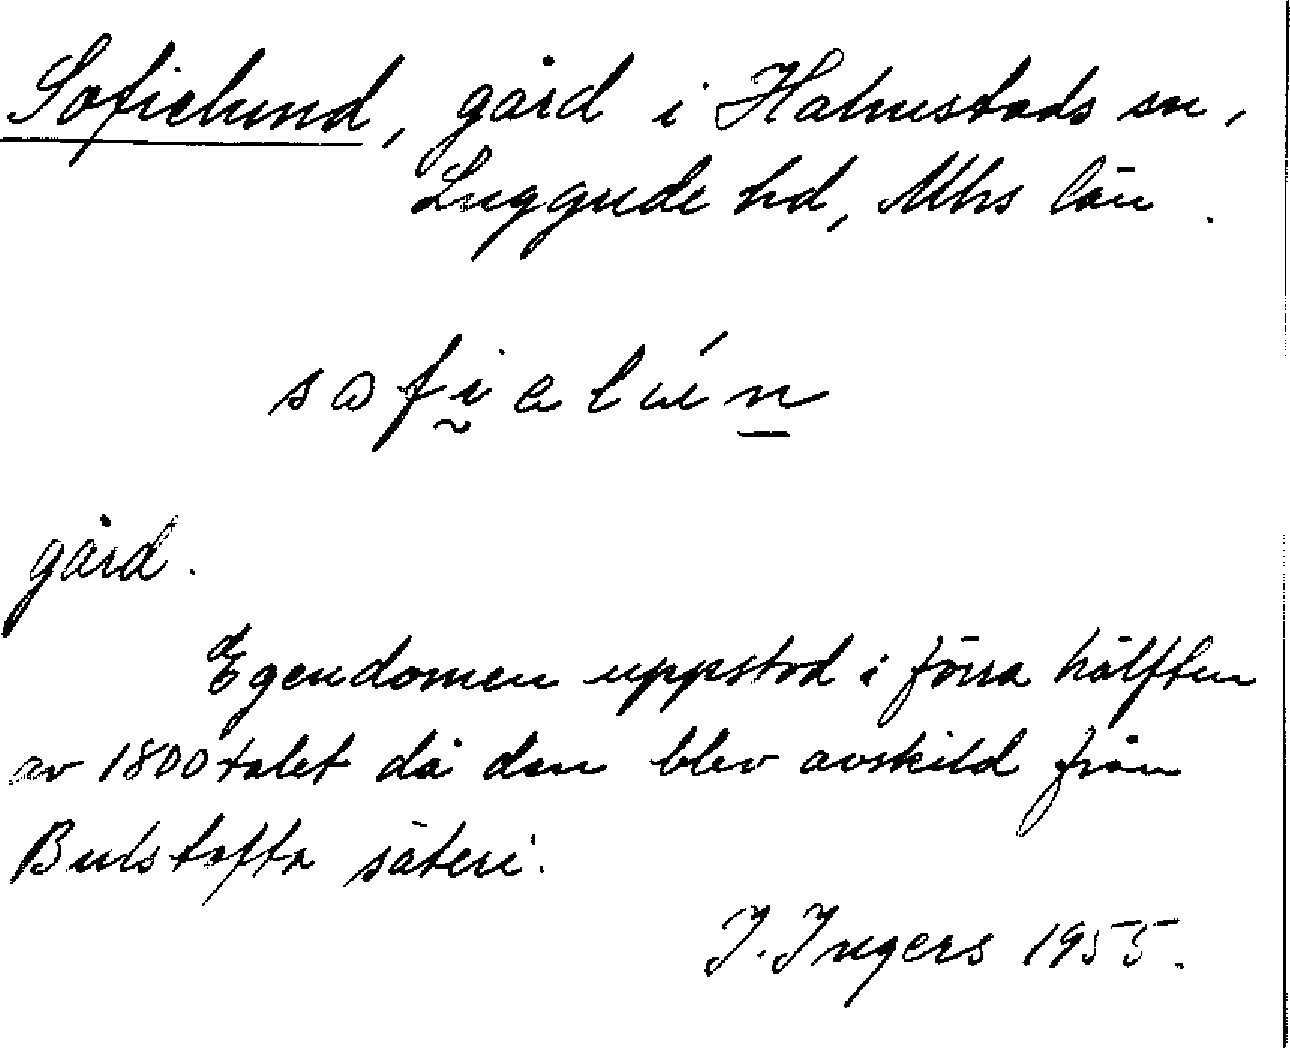 Sofielund, gård i Halmstads sn,
Luggude hd, Mhs län.
gård.
Egendomen uppstod i förra hälften
av 1800talet då den blev avskild från
Bulstofta säteri.
I. Ingers 1955.